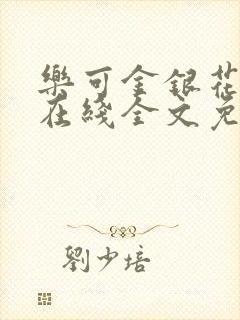 樂可金銀花
在綫全文免
劉少培